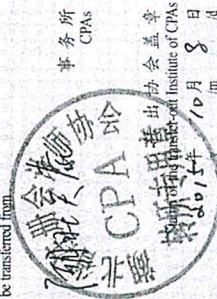 be transferred from
事务所
CPAs
出协会盖章
the Transfer-out Institute of CPAs
2015年 10月 8日
/m /d
册会计师协会
湖北
CPA
转所专用章